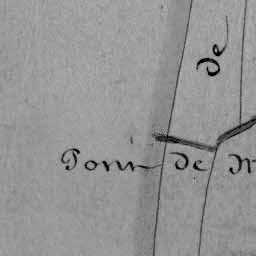 de
Pont de M